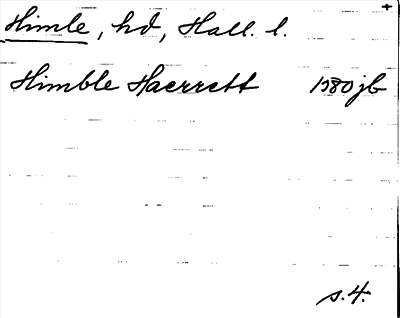 Himle, hd, Hall. l.
Himble Haerrett 1580 jb
s. 4.